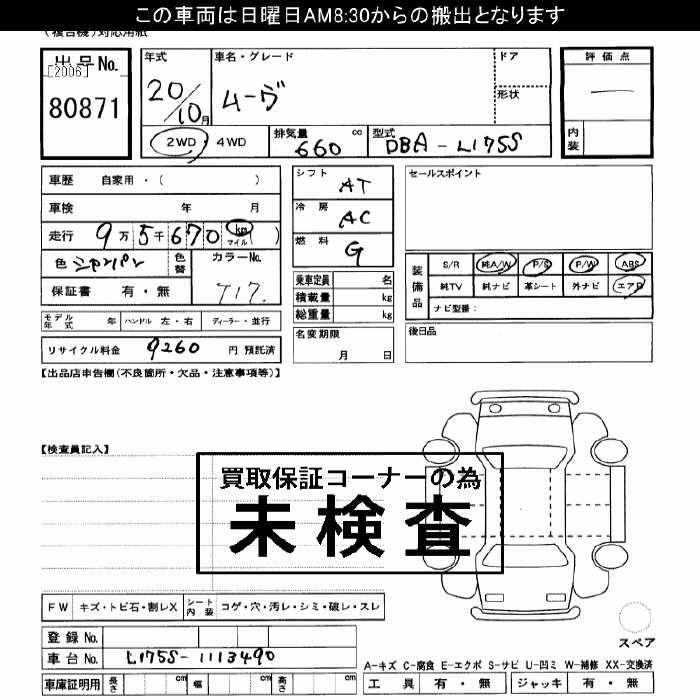 この車両は日曜日AM8:30からの搬出となります
(複合機)対応用紙
出品No.
[2006]
80871
年式
20/10月
車名・グレード
ムーヴ
ドア
形状
2WD・4WD
排気量 660 cc
型式 DBA-L175S
評価点
―
内装
車歴 自家用・( )
車検 年 月
走行 9万5千670 km マイル ( )
色 シャンパン 色替
カラーNo. T17.
保証書 有・無
モデル年式 年 ハンドル 左・右 ディーラー・並行
リサイクル料金 9260 円 預託済
シフト AT
冷房 AC
燃料 G
乗車定員 名
積載量 kg
総重量 kg
名変期限
月 日
セールスポイント
装備品
S/R 純A/W P/S P/W ABS
純TV 純ナビ 革シート 外ナビ エアB
ナビ型番:
後日品
【出品店申告欄(不良箇所・欠品・注意事項等)】
【検査員記入】
買取保証コーナーの為
未検査
FW キズ・トビ石・割レX シート内装 コゲ・穴・汚レ・シミ・破レ・スレ
登録No.
車台No. L175S-1113490
車庫証明用 長さ cm 幅 cm 高さ cm
スペア
A-キズ C-腐食 E-エクボ S-サビ U-凹ミ W-補修 XX-交換済
工具 有・無 ジャッキ 有・無